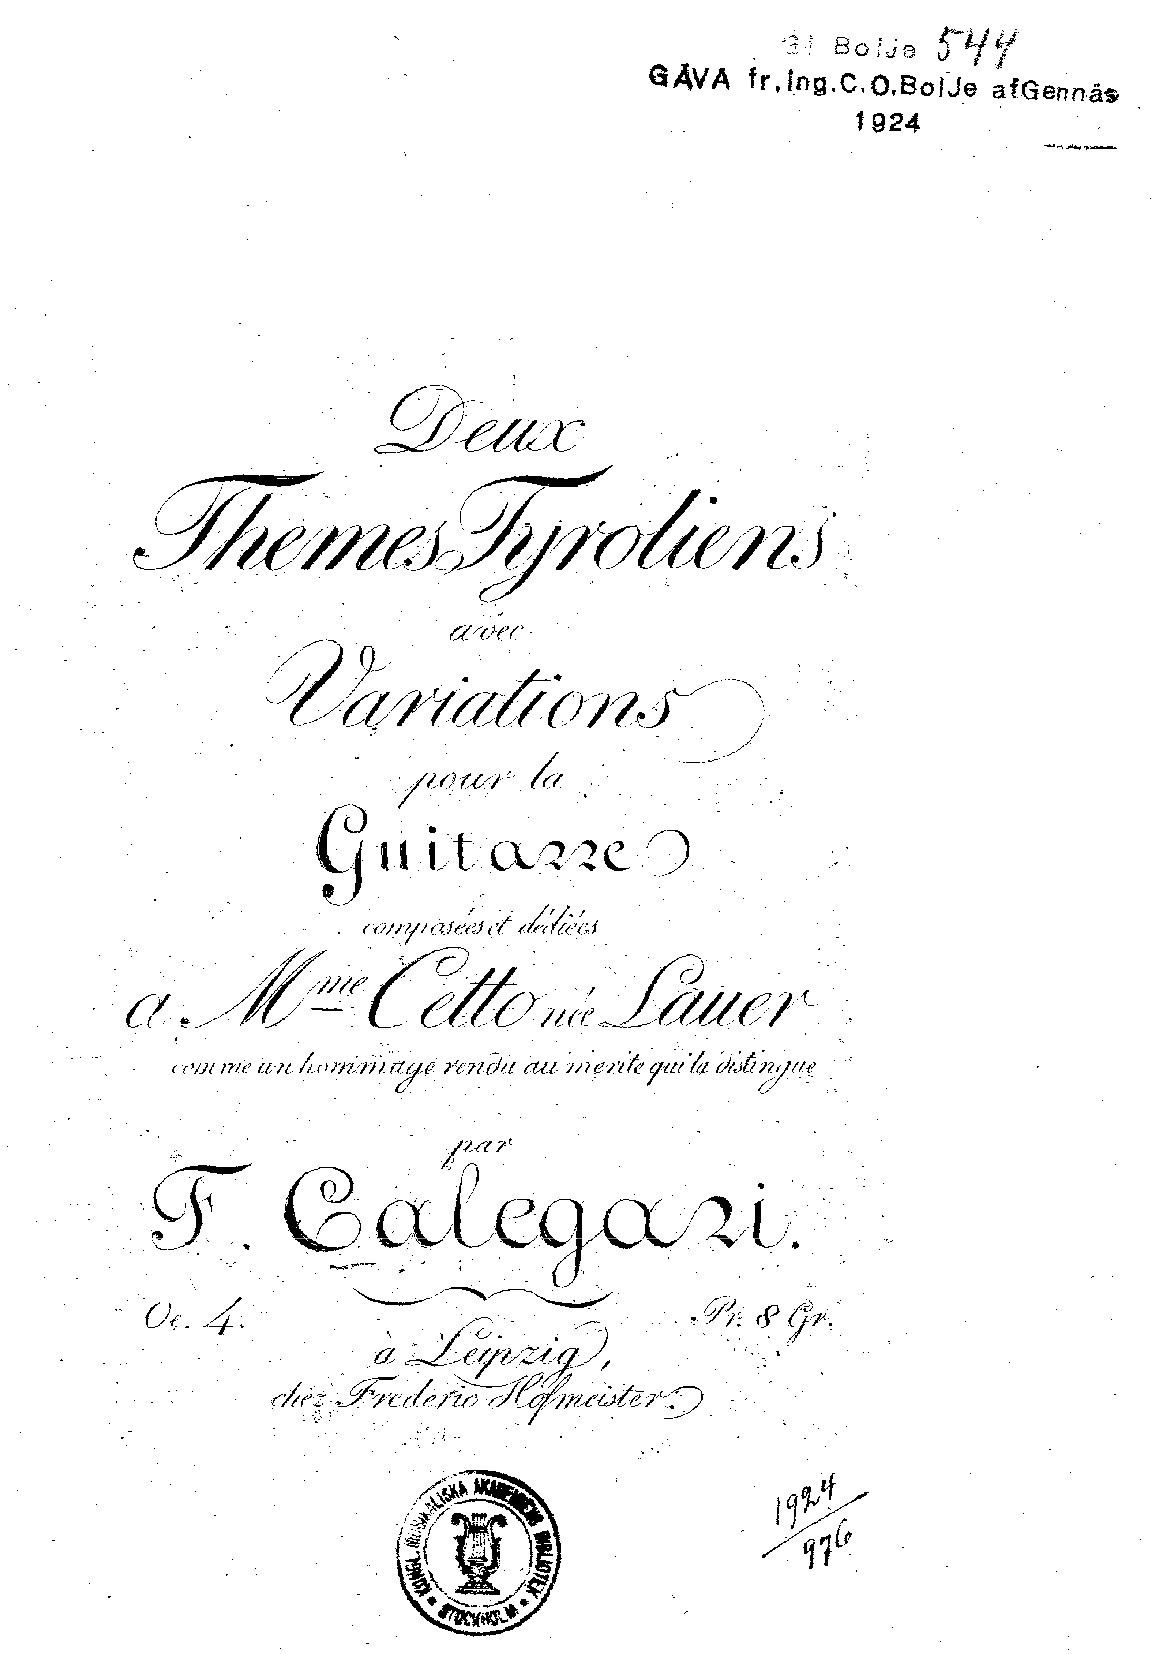 Gi Boije 544
GÅVA fr. Ing. C. O. Boije af Gennäs
1924
Deux
Themes Tyroliens
avec
Variations
pour la
Guitarre
composées et dédiées
a Mme Cetto née Lauer
comme un hommage rendu au merite qui la distingue
par
F. Calegari.
Oe. 4. Pr. 8 Gr.
à Leipzig,
chez Frederic Hofmeister.
KONGL. MUSIKALISKA AKADEMIENS BIBLIOTEK
STOCKHOLM
1924
976